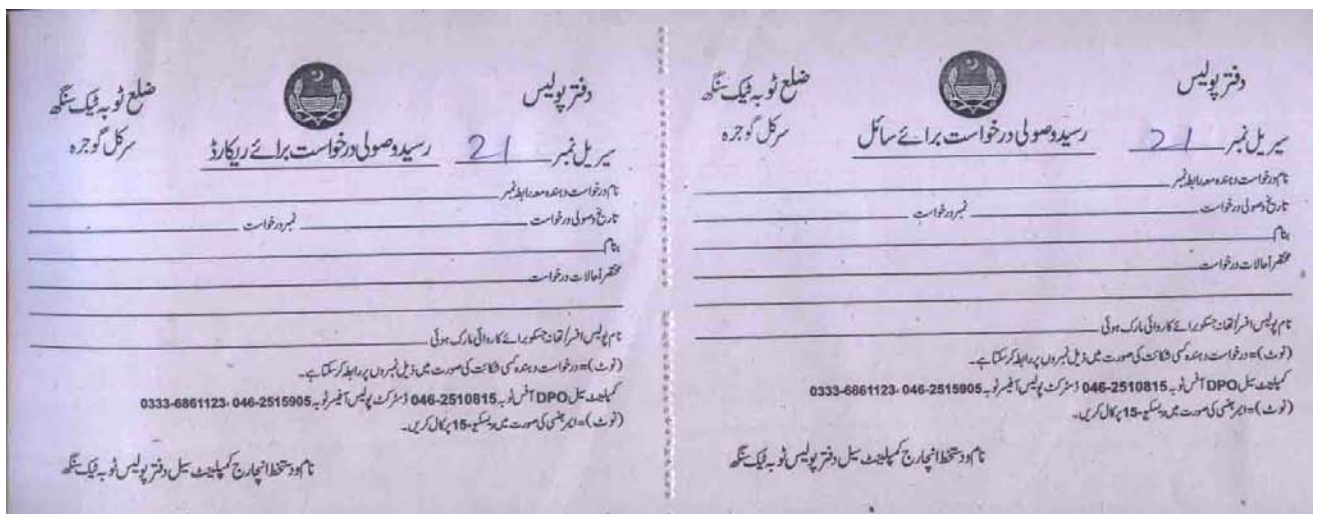 دفتر پولیس
ضلع ٹوبہ ٹیک سنگھ
سیریل نمبر 21 رسید وصولی درخواست برائے سائل سرکل گوجرہ
نام درخواست دہندہ معہ رابطہ نمبر
تاریخ وصولی درخواست نمبر درخواست
بنام
مختصراً حالات درخواست
نام پولیس افسر/تھانہ جسکو برائے کاروائی مارک ہوئی
(نوٹ)=درخواست دہندہ کسی شکائت کی صورت میں ذیل نمبروں پر رابطہ کر سکتا ہے۔
کمپلینٹ سیل DPO آفس ٹوبہ 046-2510815 ڈسٹرکٹ پولیس آفیسر ٹوبہ 046-2515905 ،0333-6861123
(نوٹ)=ایمرجنسی کی صورت میں ریسکیو-15 پر کال کریں۔
نام و دستخط انچارج کمپلینٹ سیل دفتر پولیس ٹوبہ ٹیک سنگھ
دفتر پولیس
ضلع ٹوبہ ٹیک سنگھ
سیریل نمبر 21 رسید وصولی درخواست برائے ریکارڈ سرکل گوجرہ
نام درخواست دہندہ معہ رابطہ نمبر
تاریخ وصولی درخواست نمبر درخواست
بنام
مختصراً حالات درخواست
نام پولیس افسر/تھانہ جسکو برائے کاروائی مارک ہوئی
(نوٹ)=درخواست دہندہ کسی شکائت کی صورت میں ذیل نمبروں پر رابطہ کر سکتا ہے۔
کمپلینٹ سیل DPO آفس ٹوبہ 046-2510815 ڈسٹرکٹ پولیس آفیسر ٹوبہ 046-2515905 ،0333-6861123
(نوٹ)=ایمرجنسی کی صورت میں ریسکیو-15 پر کال کریں۔
نام و دستخط انچارج کمپلینٹ سیل دفتر پولیس ٹوبہ ٹیک سنگھ